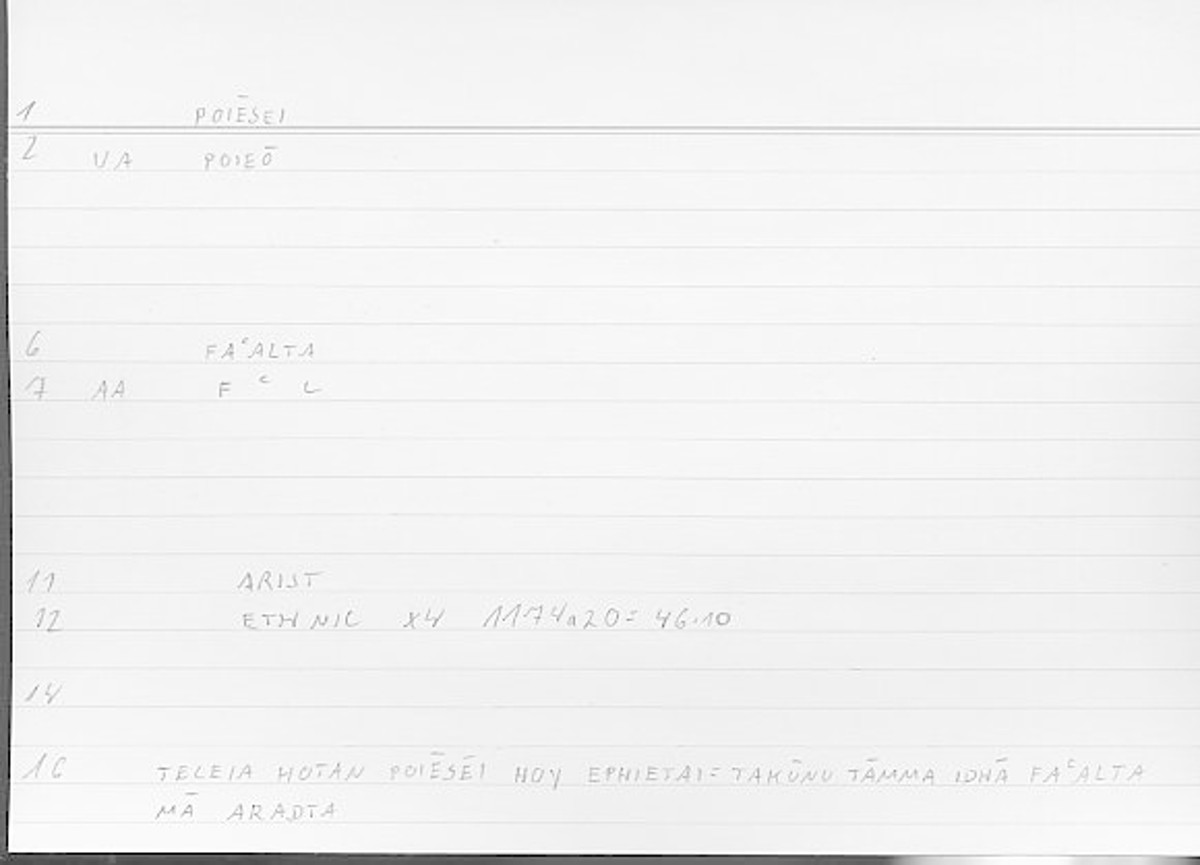 1 POIĒSEI
2 VA POIEŌ
6 FAᶜALTA
7 AA F ᶜ L
11 ARIST
12 ETH NIC X4 1174a20= 46.10
14
16 TELEIA HOTAN POIĒSĒI HOY EPHIETAI= TAKŪNU TĀMMA IDHĀ FAᶜALTA
MĀ ARADTA